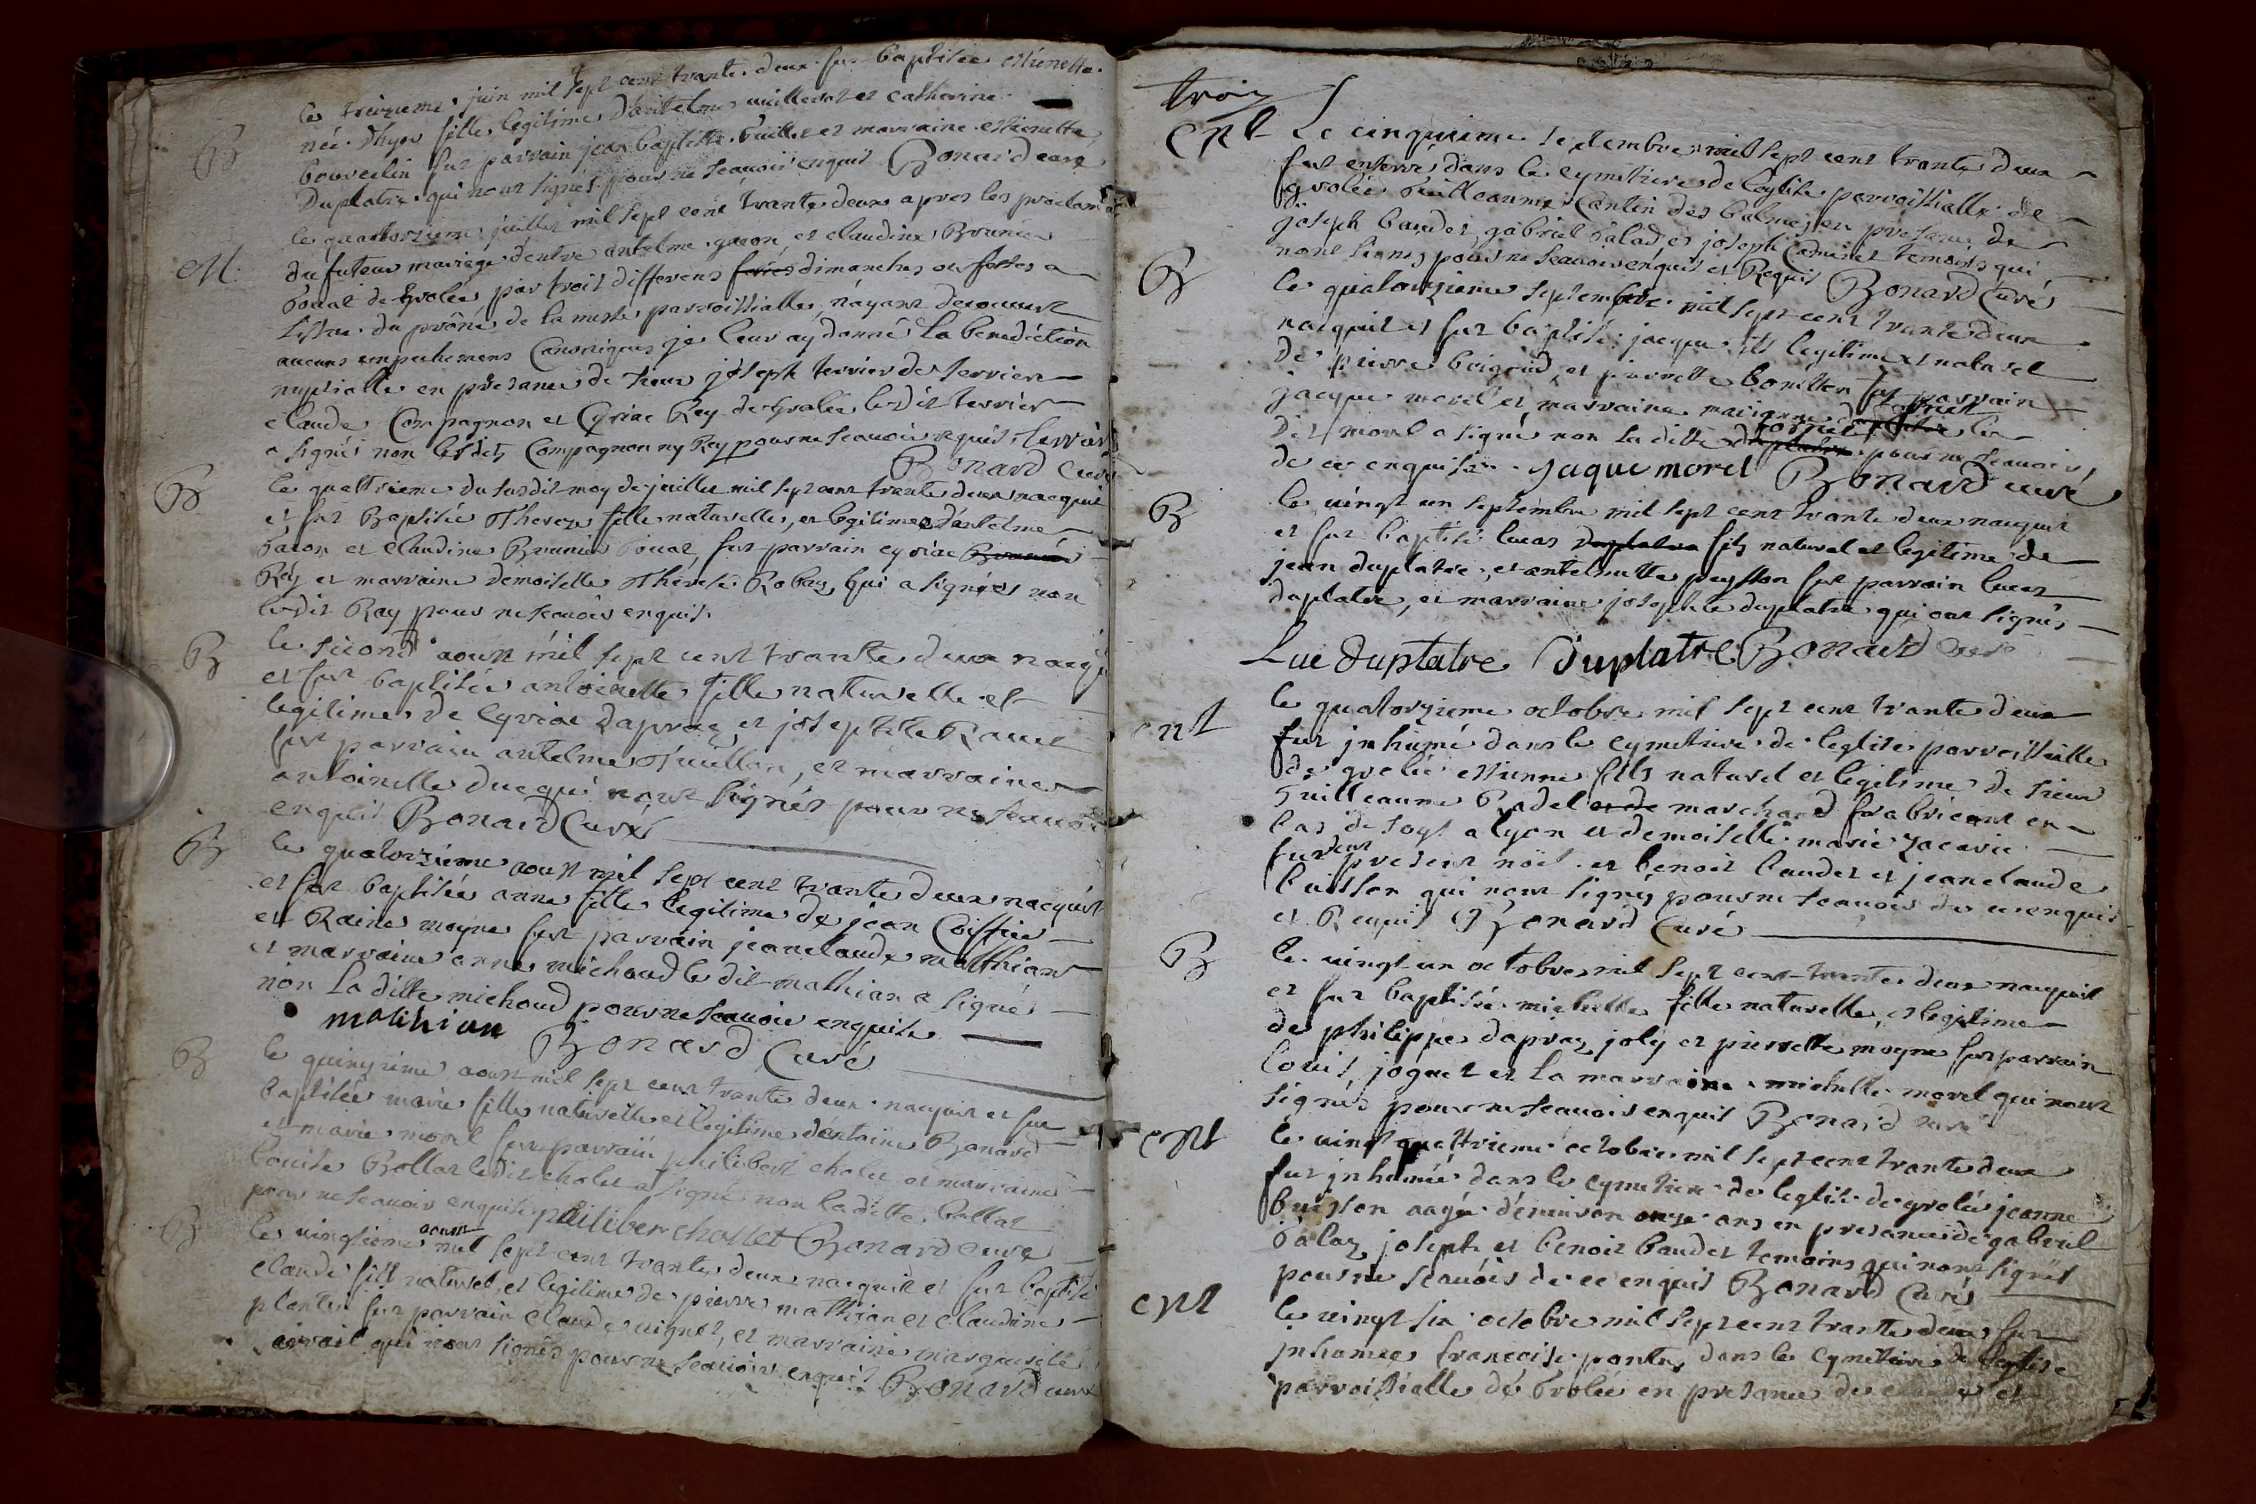 le treizieme juin mil sept cent trante deux fut baptisée estienette
née d'hyer fille legitime d'antelme et catherine
B
fut parrain jean baptiste et marraine estienette
Duplatre qui n'ont signés pour ne scauoir enquis Bonard curé
le quatorzieme juillet mil sept cent trante deux apres les proclam
M.
du futeur mariage d'entre antelme et claudine Brunier
de Grolée par trois differens dimanches ou festes a
du prône de la messe parroissialle, n'ayant decouuert
aucuns empechemens Canoniques je leur ay donné la benediction
nuptialle en presance de sieur joseph terrier de terrier
claude Compagnon et Cyriac Rey de Grolée ledit terrier
a signés non lesdits Compagnon ny Rey pour ne scauoir requis. terrier
Bonard Curé
B
le quattrieme du susdit moy de juillet mil sept cent trante deux nacquit
et fut Baptisée Thereze fille naturelle, et legitime d'antelme
et Claudine Brunier fut parrain cyriac
Rey et marraine demoiselle Thérese Robaz, qui a signées non
ledit Ray pour ne scauoir enquis.
B
le second aoust mil sept cent trante deux nacqui
et fut baptisée antoinette fille naturelle et
legitime de Cyriac Dapraz et josephte
fut parrain antelme et marraine
antoinette Duc qui n'ont signés pour ne scauoir
enquis Bonard Curé
B
le quatorzieme aoust mil sept cent trante deux nacquit
et fut baptisée anne fille legitime de jean Coiffier
et Raine moyne fut parrain jeanclaude mathian
et marraine anne michaud le dit mathian a signés
non la ditte michaud pour ne scauoir enquise
mathian Bonard Curé
B
le quinzieme aoust mil sept cent trante deux nacquit et fut
baptisée marie fille naturelle et legitime Bonard
et marie morel fut parrain philibert cholet et marraine
Louise Bollat ledit cholet a signé non la ditte Bollat
pour ne scauoir enquise philiber chollet Bonard curé
B
le vingtieme aoust mil sept cent trante deux nacquit et fut baptisé
claude fils naturel et legitime de pierre mathian et claudine
fut parrain claude uignot, et marraine marguerite
qui n'ont signés pour ne scauoir enquis Bonard curé
trois
ent Le cinquieme septembre mil sept cent trante deux
fut enterré dans le cymetiere de l'eglise parroissialle de
grolée Guilleaume Cantin des balmes en presance de
joseph baudet, gabriel Palaz et joseph temoins qui
n'ont signés pour ne scauoir enquis et Requis Bonard Curé
B
le quatorzieme septembre mil sept cent trante deux
nacquit et fut baptisé jacque fils legitime et naturel
de pierre et pierrette bouillon fut parrain
jacque morel et marraine
dit morel a signé non la ditte pour ne scauoir
de ce enquise. Jaque morel Bonard curé
B
le uingt un septembre mil sept cent trante deux nacquit
et fut baptisé lucas fils naturel et legitime de
jean duplatre, et antelmette peysson fut parrain lucas
duplatre, et marraine josephte duplatre qui ont signés
Luc Duplatre Duplatre Bonard Curé
ent
le quatorzieme octobre mil sept cent trante deux
fut jnhumé dans le cymetiere de l'eglise parroissialle
de grolée estienne fils naturel et legitime de sieur
Guilleaume Radel marchand fabricant en
bas de soye a lyon et demoiselle marie zacarie
furent present noël et benoit baudet et jeanclaude
buisson qui n'ont signés pour ne scauoir de ce enquis
et Requis Bonard Curé
B
le uingt un octobre mil sept cent trante deux nacquit
et fut baptisée michelle fille naturelle, et legitime
de philippe dapraz joly et pierrette moyne fut parrain
Louis joguet et la marraine michelle morel qui n'ont
signés pour ne scauoir enquis Bonard curé
ent
le uingt quattrieme octobre mil sept cent trante deux
fut jnhumée dans le cymetiere de l'eglise de grolée jeanne
buisson aagée d'enuiron onze ans en presance de gabriel
Palaz, joseph et benoit baudet temoins qui n'ont signés
pour ne scauoir de ce enquis Bonard Curé
ent
le uingt six octobre mil sept cent trante deux fut
jnhumee francoise pontet dans le Cymetiere de l'eglise
parroissialle de Grolée en presance de claude et